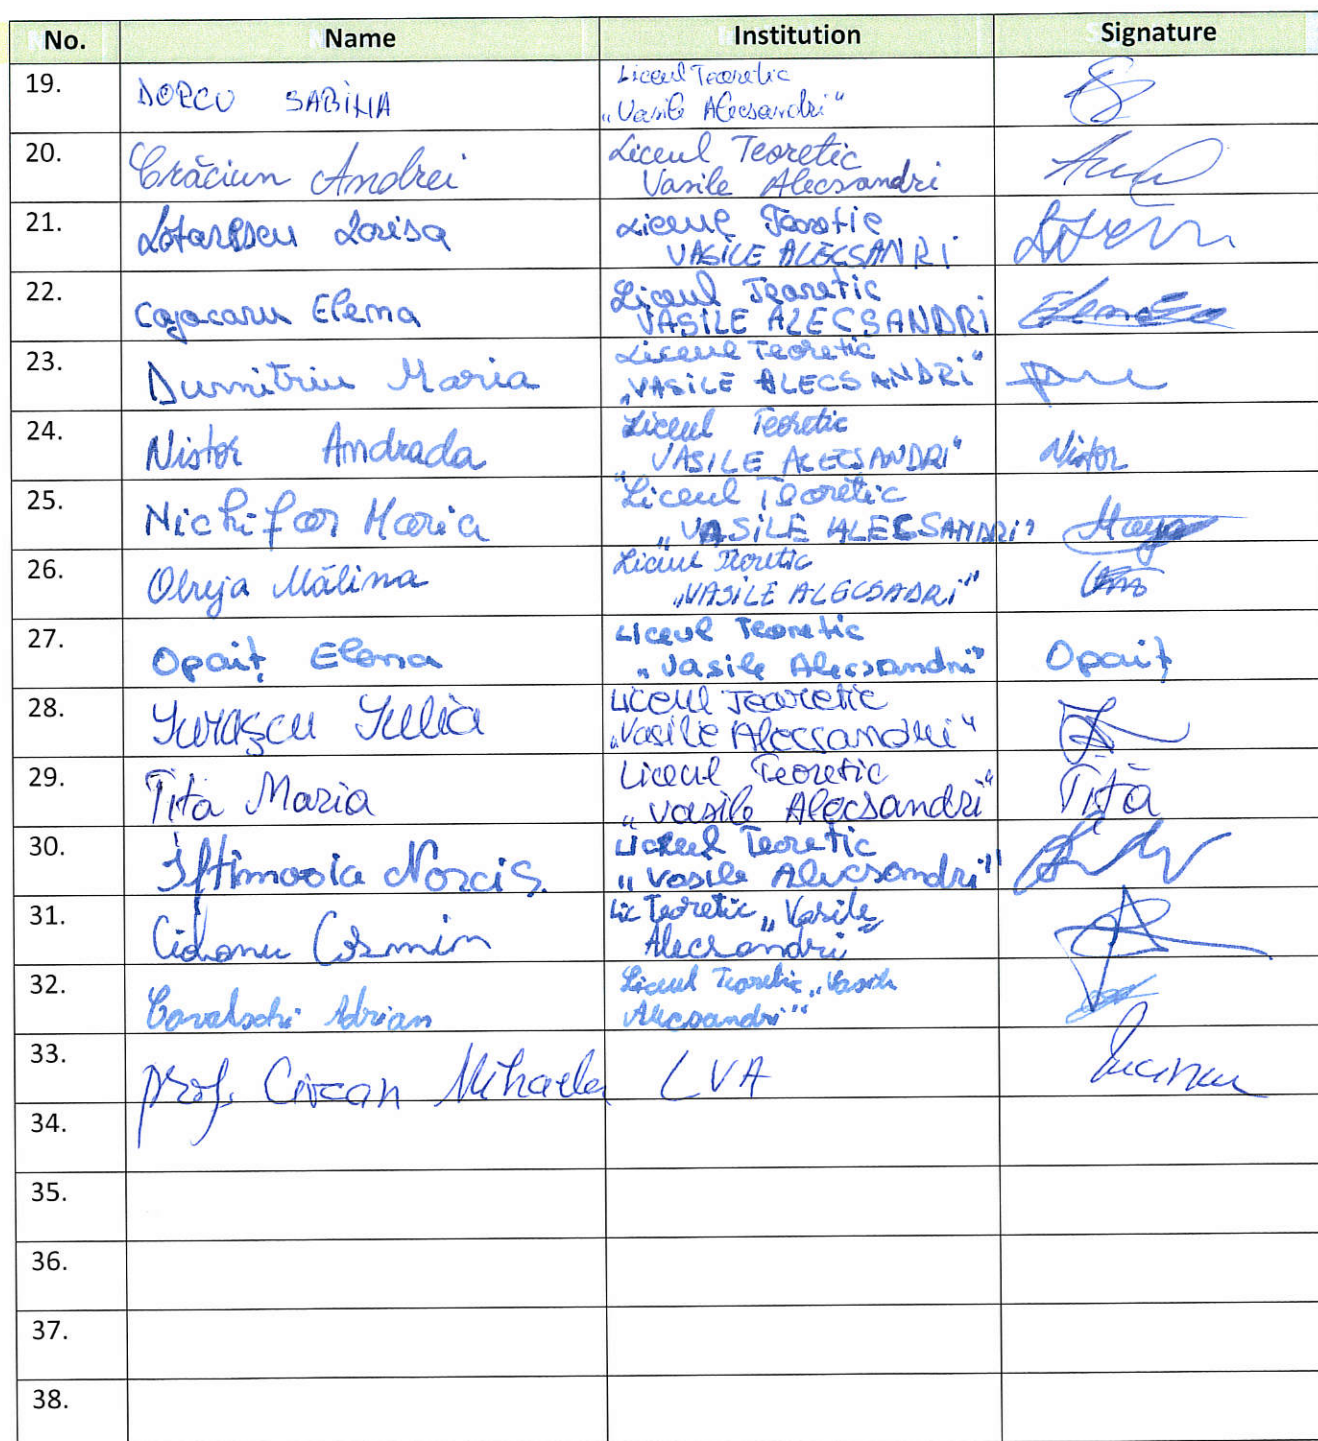 No. Name Institution Signature
19. DORCU SABINA Liceul Teoretic
„Vasile Alecsandri"
20. Crăciun Andrei Liceul Teoretic
Vasile Alecsandri
21. Lotarescu Larisa Liceul Teoretic
VASILE ALECSANRI
22. Cojocaru Elena Liceul Teoretic
VASILE ALECSANDRI Elena
23. Dumitriu Maria Liceul Teoretic
„VASILE ALECSANDRI"
24. Nistor Andrada Liceul Teoretic
„VASILE ALECSANDRI" Nistor
25. Nichifor Maria Liceul Teoretic
„VASILE ALECSANDRI"
26. Mălina Liceul Teoretic
„VASILE ALECSADRI"
27. Opaiț Elena Liceul Teoretic
„Vasile Alecsandri" Opaiț
28. Iurașcu Iulia Liceul Teoretic
„Vasile Alecsandri"
29. Tita Maria Liceul Teoretic
„Vasile Alecsandri" Tiță
30. Narcis. Liceul Teoretic
„Vasile Alecsandri"
31. Cosmin Lic Teoretic „Vasile
Alecsandri"
32. Adrian Liceul Teoretic „Vasile
Alecsandri"
33. prof. Mihaela LVA
34.
35.
36.
37.
38.